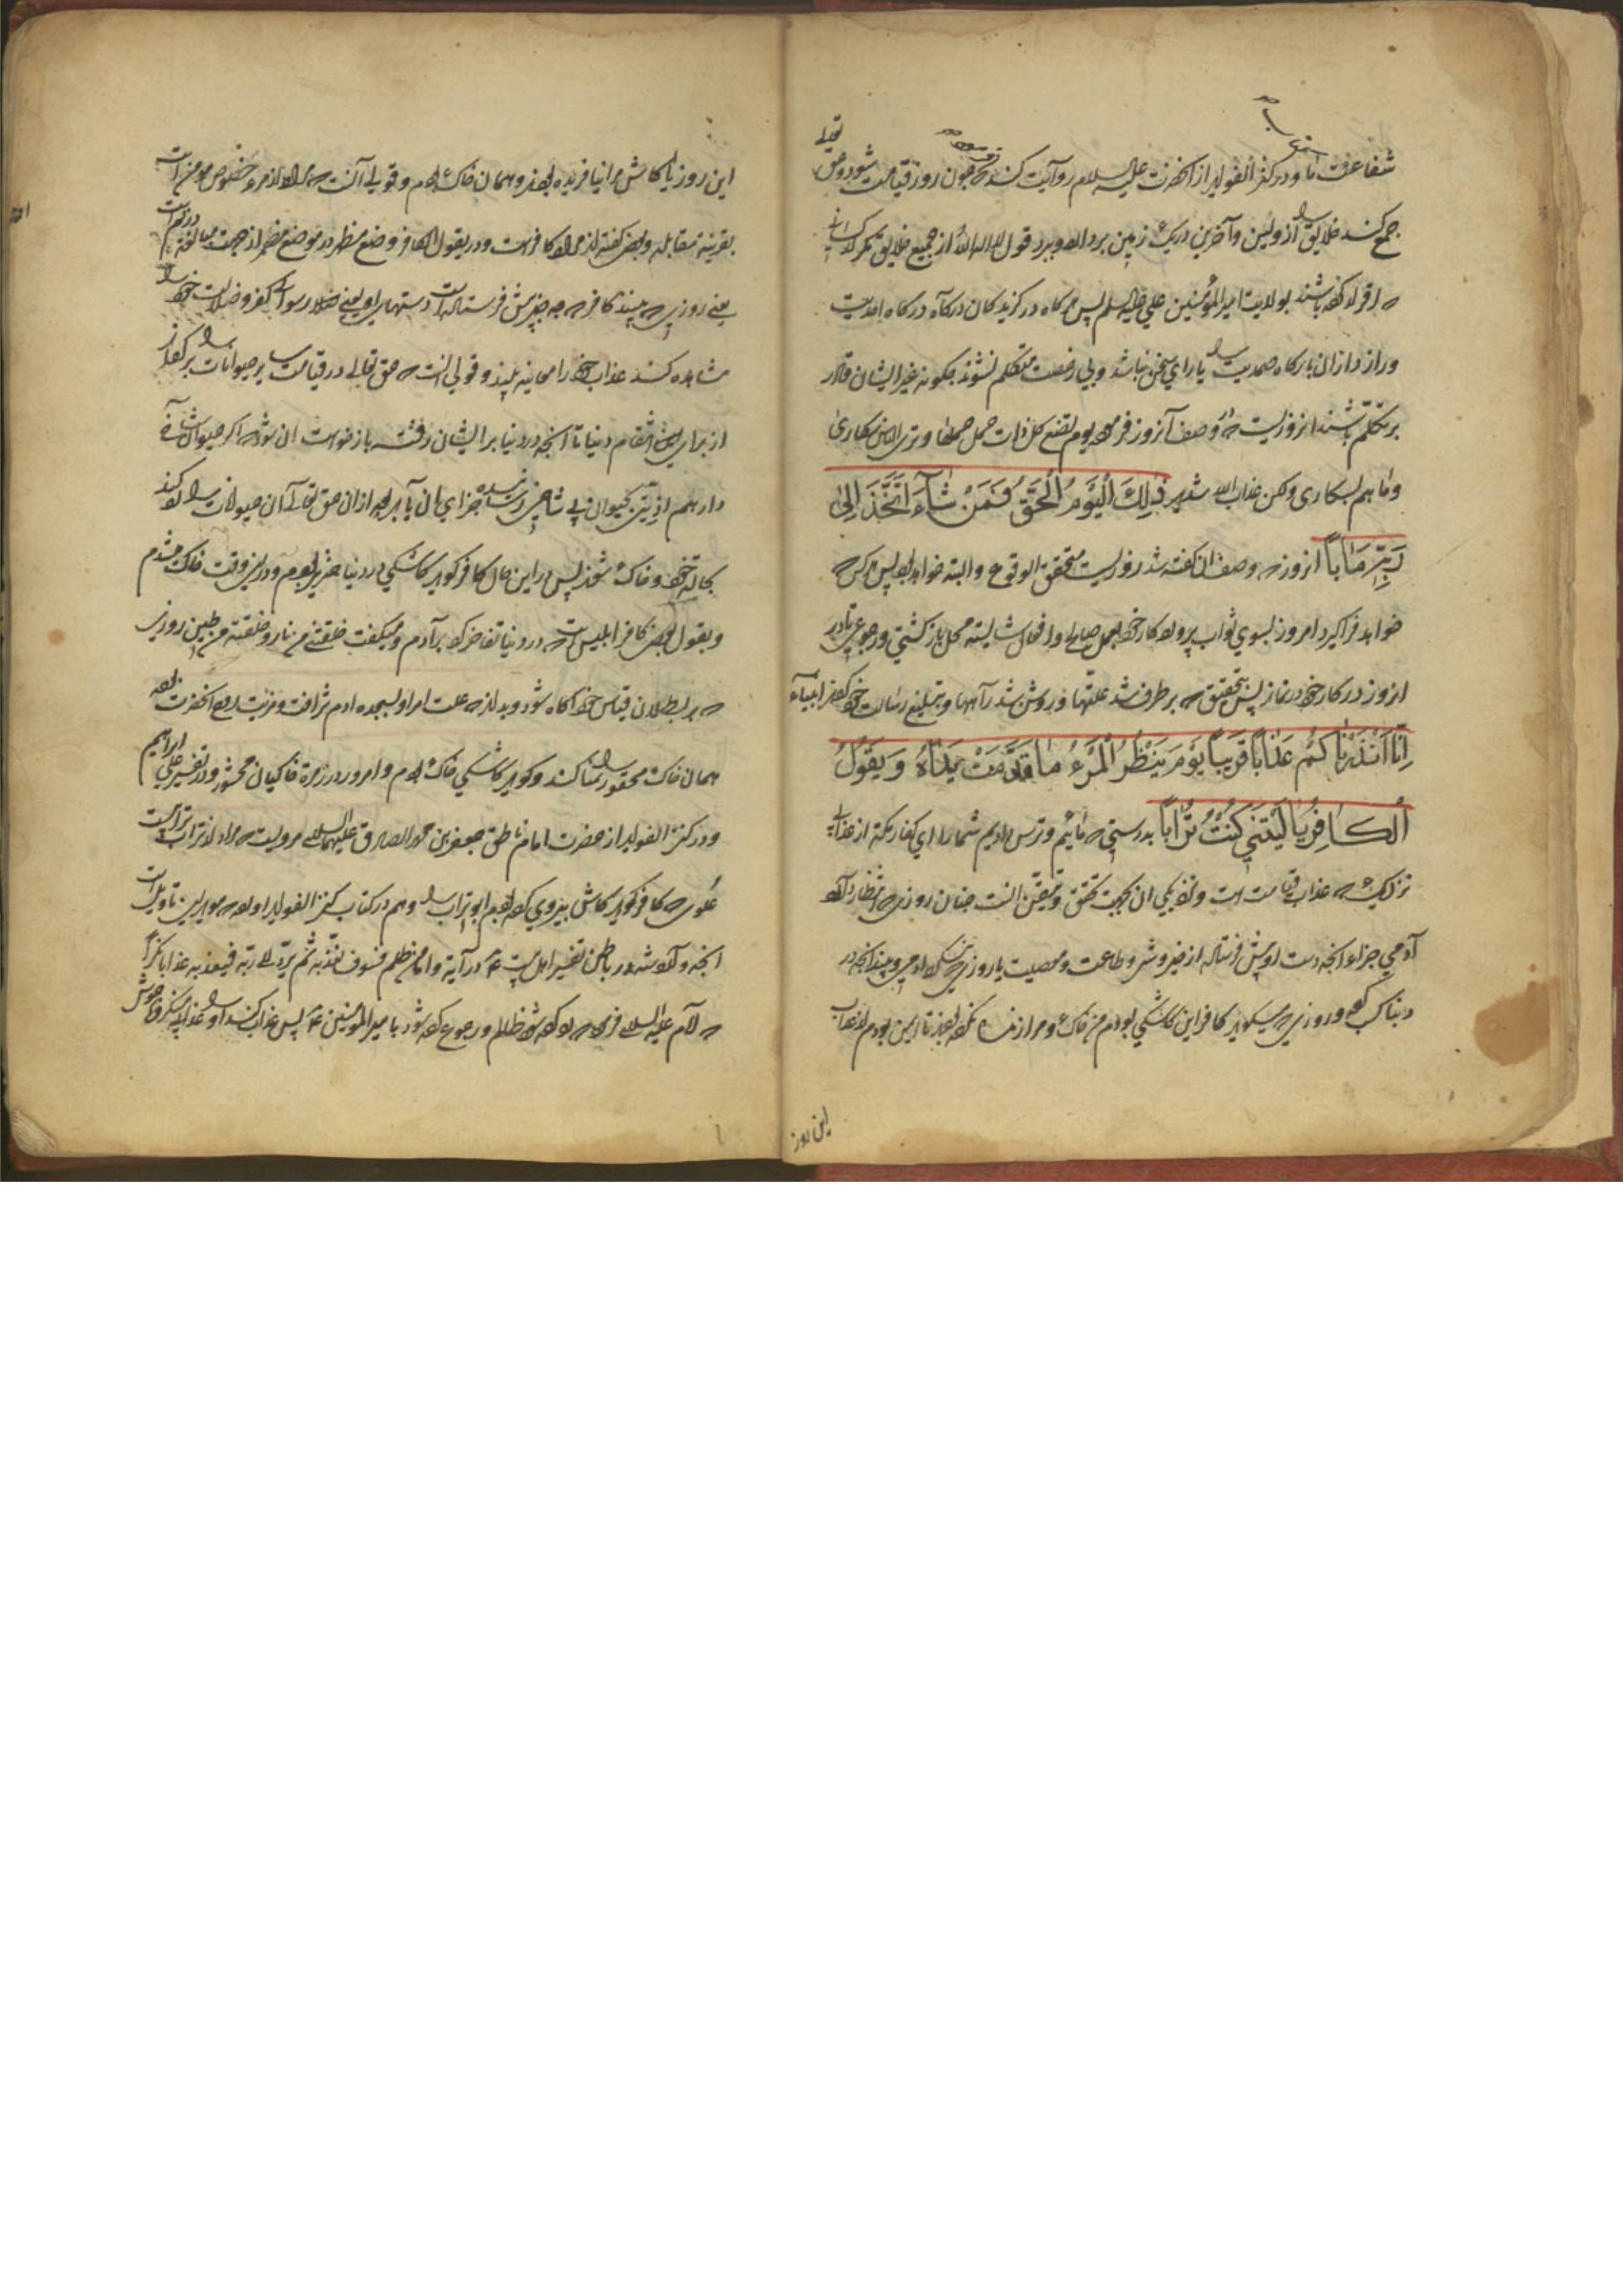 شفاعت اما و در کنز الفواید از آنحضرت علیه السلام روایت کند که چون روز قیامت شود و حق تعالی
جمع کند خلایق را از اولین و آخرین در یک زمین برد الله وبرد قول لا اله الا الله از جمیع خلایق مگر کسانی
که اقرار کرده باشند بولایت امیرالمؤمنین علی علیه السلم پس هر گاه در گزیدگان درگاه احدیت
و راز داران بارگاه صمدیت را یارای سخن نباشد و بی رخصت متکلم نشوند چگونه غیر ایشان قادر
بر تکلم باشند انروزیست که در وصف آنروز فرموده یوم تضع کل ذات حمل حملها وتری الناس سکاری
وما هم بسکاری ولکن عذاب الله شدید ذٰلِكَ الْيَوْمُ الْحَقُّ فَمَنْ شَآءَ اتَّخَذَ اِلىٰ
رَبِّهِ مَاٰباً انروز که وصف ان گفته شد روزیست متحقق الوقوع و البته خواهد بود پس هر کس که
خواهد فراگیرد امروز بسوی ثواب پروردگار خود بعمل صالح و افعال شایسته محل بازگشتی و رجوعی تا در
انروز در کار خود درنماند پس بتحقیق که برطرف شد علتها و روشن شد راهها و بتبلیغ رسالت خود کردن انبیاء
اِنّٰا اَنْذَرْنٰاكُمْ عَذٰاباً قَرِيباً يَوْمَ يَنْظُرُ الْمَرْءُ مٰا قَدَّمَتْ يَدٰاهُ وَيَقُولُ
الْكٰافِرُ يٰا لَيْتَنِي كُنْتُ تُرٰاباً بدرستی که مائیم و ترس دادیم شما را ای کفار مکه از عذاب
نزدیک که عذاب قیامت است و نزدیکی ان بجهت تحقق و تیقن انست چنان روزی که انتظار دارد
آدمی جزاء انچه دست او پیش فرستاده از خیر و شر و طاعت و معصیت یا روزی که ادمی ببیند انچه در
دنیا کسب کرده و روزی که میگوید کافر این کاشکی بودم من خاک و مرا زنده نکرده بودند تا ایمن بودم از عذاب
این روز
این روز یا کاش مرا نیافریده بودند و همان خاک بودم و قولی آنست که مراد از مرء خصوص مومن است
بقرینه مقابله و بعض گفته اند مراد کافر است و در یقول الکافر وضع مظهر در موضع مضمر از جهت مبالغه در ذم است
یعنی روزی که بیند کافر که چه چیز پیش فرستاده است دستهای او یعنی کفر و ضلالت خود را
مشاهده کند عذاب خود را معاینه بیند و قولی انست که حق تعالی در قیامت سایر حیوانات را برگرداند
از برای انتقام دنیا تا انچه در دنیا بر ایشان رفته بازخواست ان شود که اگر حیوان شاخ
دار هم اذیتی بحیوان بی شاخ رسانیده جزای ان یابد بعد ازان حق تعالی آن حیوانات را امر کند
بحالة خود و خاک شوند پس در این حال کافر گوید کاشکی در دنیا خنزیر بودم و در این وقت خاک میشدم
و بقول بعض کافر ابلیس است که در دنیا تفاخر کرد بر آدم و میگفت خلقتنی من نار وخلقته من طین روزی
که بر بطلان قیاس خود آگاه شود و بداند که علت امر او بسجده ادم شرافت و مزیت روح انحضرت بود
همان خاک محقور را تمنا کند و گوید کاشکی خاک بودم و امروز در زمرة خاکیان محشور و در تفسیر علی ابراهیم
و در کنز الفواید از حضرت امام ناطق جعفر بن محمد الصادق علیهما السلام مرویست که مراد از تراب ترابیست
علوی که کافر گوید کاش پیروی کرده بودم ابو تراب را و هم در کتاب کنز الفواید اورده که موید این تاویل است
انچه وارد شده در باطن تفسیر اهل بیت ع در آیه واما من ظلم فسوف نعذبه ثم یرد الی ربه فیعذبه عذابا نکراً
که امام علیه السلام فرموده که او که شد ظالم و رجوع کرده شود بامیر المؤمنین ع پس عذاب کند او را عذابی منکر و ناخوش